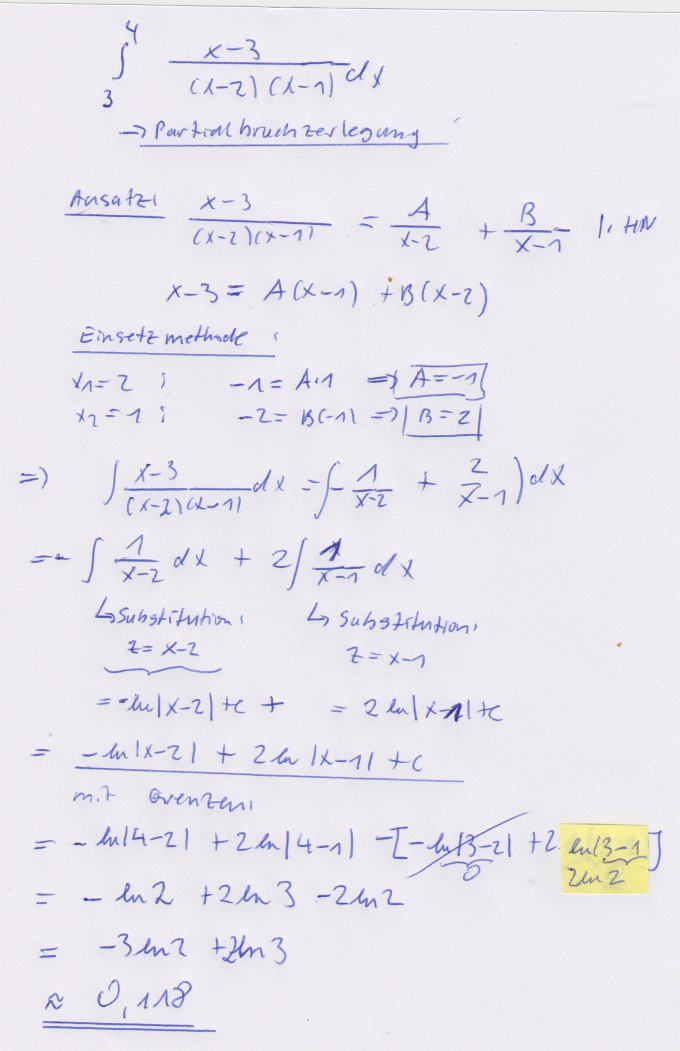 ∫₃⁴ (x-3)/((x-2)(x-1)) dx
→ Partialbruchzerlegung
Ansatz: (x-3)/((x-2)(x-1)) = A/(x-2) + B/(x-1) |· HN
x-3 = A(x-1) + B(x-2)
Einsetzmethode:
x₁=2; -1 = A·1 ⇒ A=-1
x₂=1; -2 = B(-1) ⇒ B=2
⇒ ∫ (x-3)/((x-2)(x-1)) dx = ∫(-1/(x-2) + 2/(x-1)) dx
= -∫ 1/(x-2) dx + 2∫ 1/(x-1) dx
↳ Substitution: ↳ Substitution:
z = x-2 z = x-1
= -ln|x-2|+c + = 2 ln|x-1|+c
= -ln|x-2| + 2 ln|x-1| + c
mit Grenzen:
= -ln|4-2| + 2 ln|4-1| - [-ln|3-2| + 2 ln|3-1|]
0 2 ln 2
= - ln 2 + 2 ln 3 - 2 ln 2
= -3 ln 2 + 2 ln 3
≈ 0,118